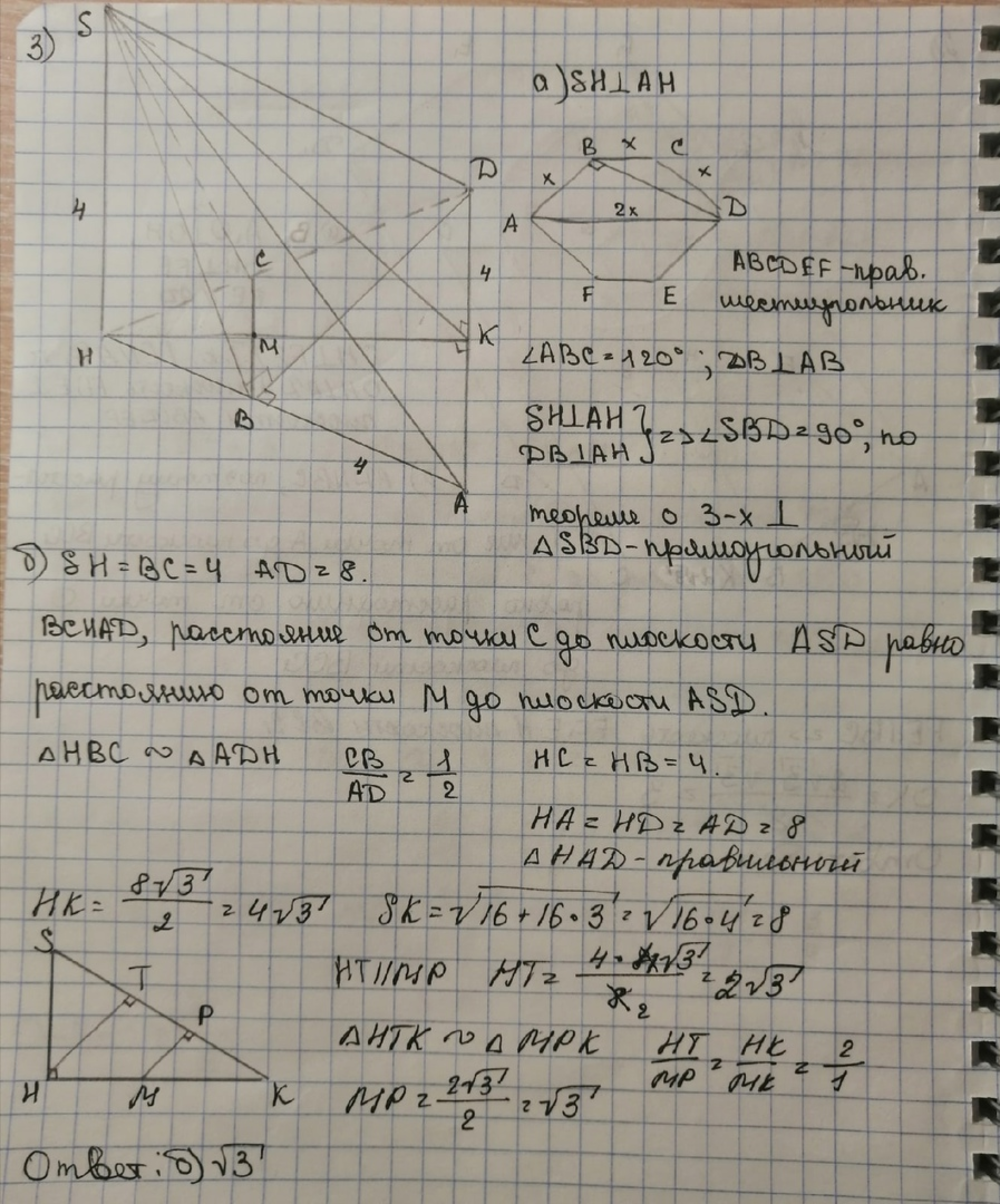 3)
S
D
4
C
4
H
M
K
B
4
A
а) SH⊥AH
B x C
x
x
A
2x
D
F
E
ABCDEF-прав.
шестиугольник
∠ABC=120°; DB⊥AB
SH⊥AH
DB⊥AH
} => ∠SBD=90°, по
теореме о 3-х ⊥
△SBD-прямоугольный
б) SH=BC=4 AD=8.
BC||AD, расстояние от точки C до плоскости ASD равно
расстоянию от точки M до плоскости ASD.
△HBC ~ △ADH CB/AD = 1/2 HC = HB = 4.
HA = HD = AD = 8
△HAD - правильный
HK = 8√3/2 = 4√3 SK = √16+16·3 = √16·4 = 8
S
T
P
H
M
K
HT||MP HT = 4·4√3/8 2 = 2√3
△HTK ~ △MPK HT/MP = HK/MK = 2/1
MP = 2√3/2 = √3
Ответ: б) √3